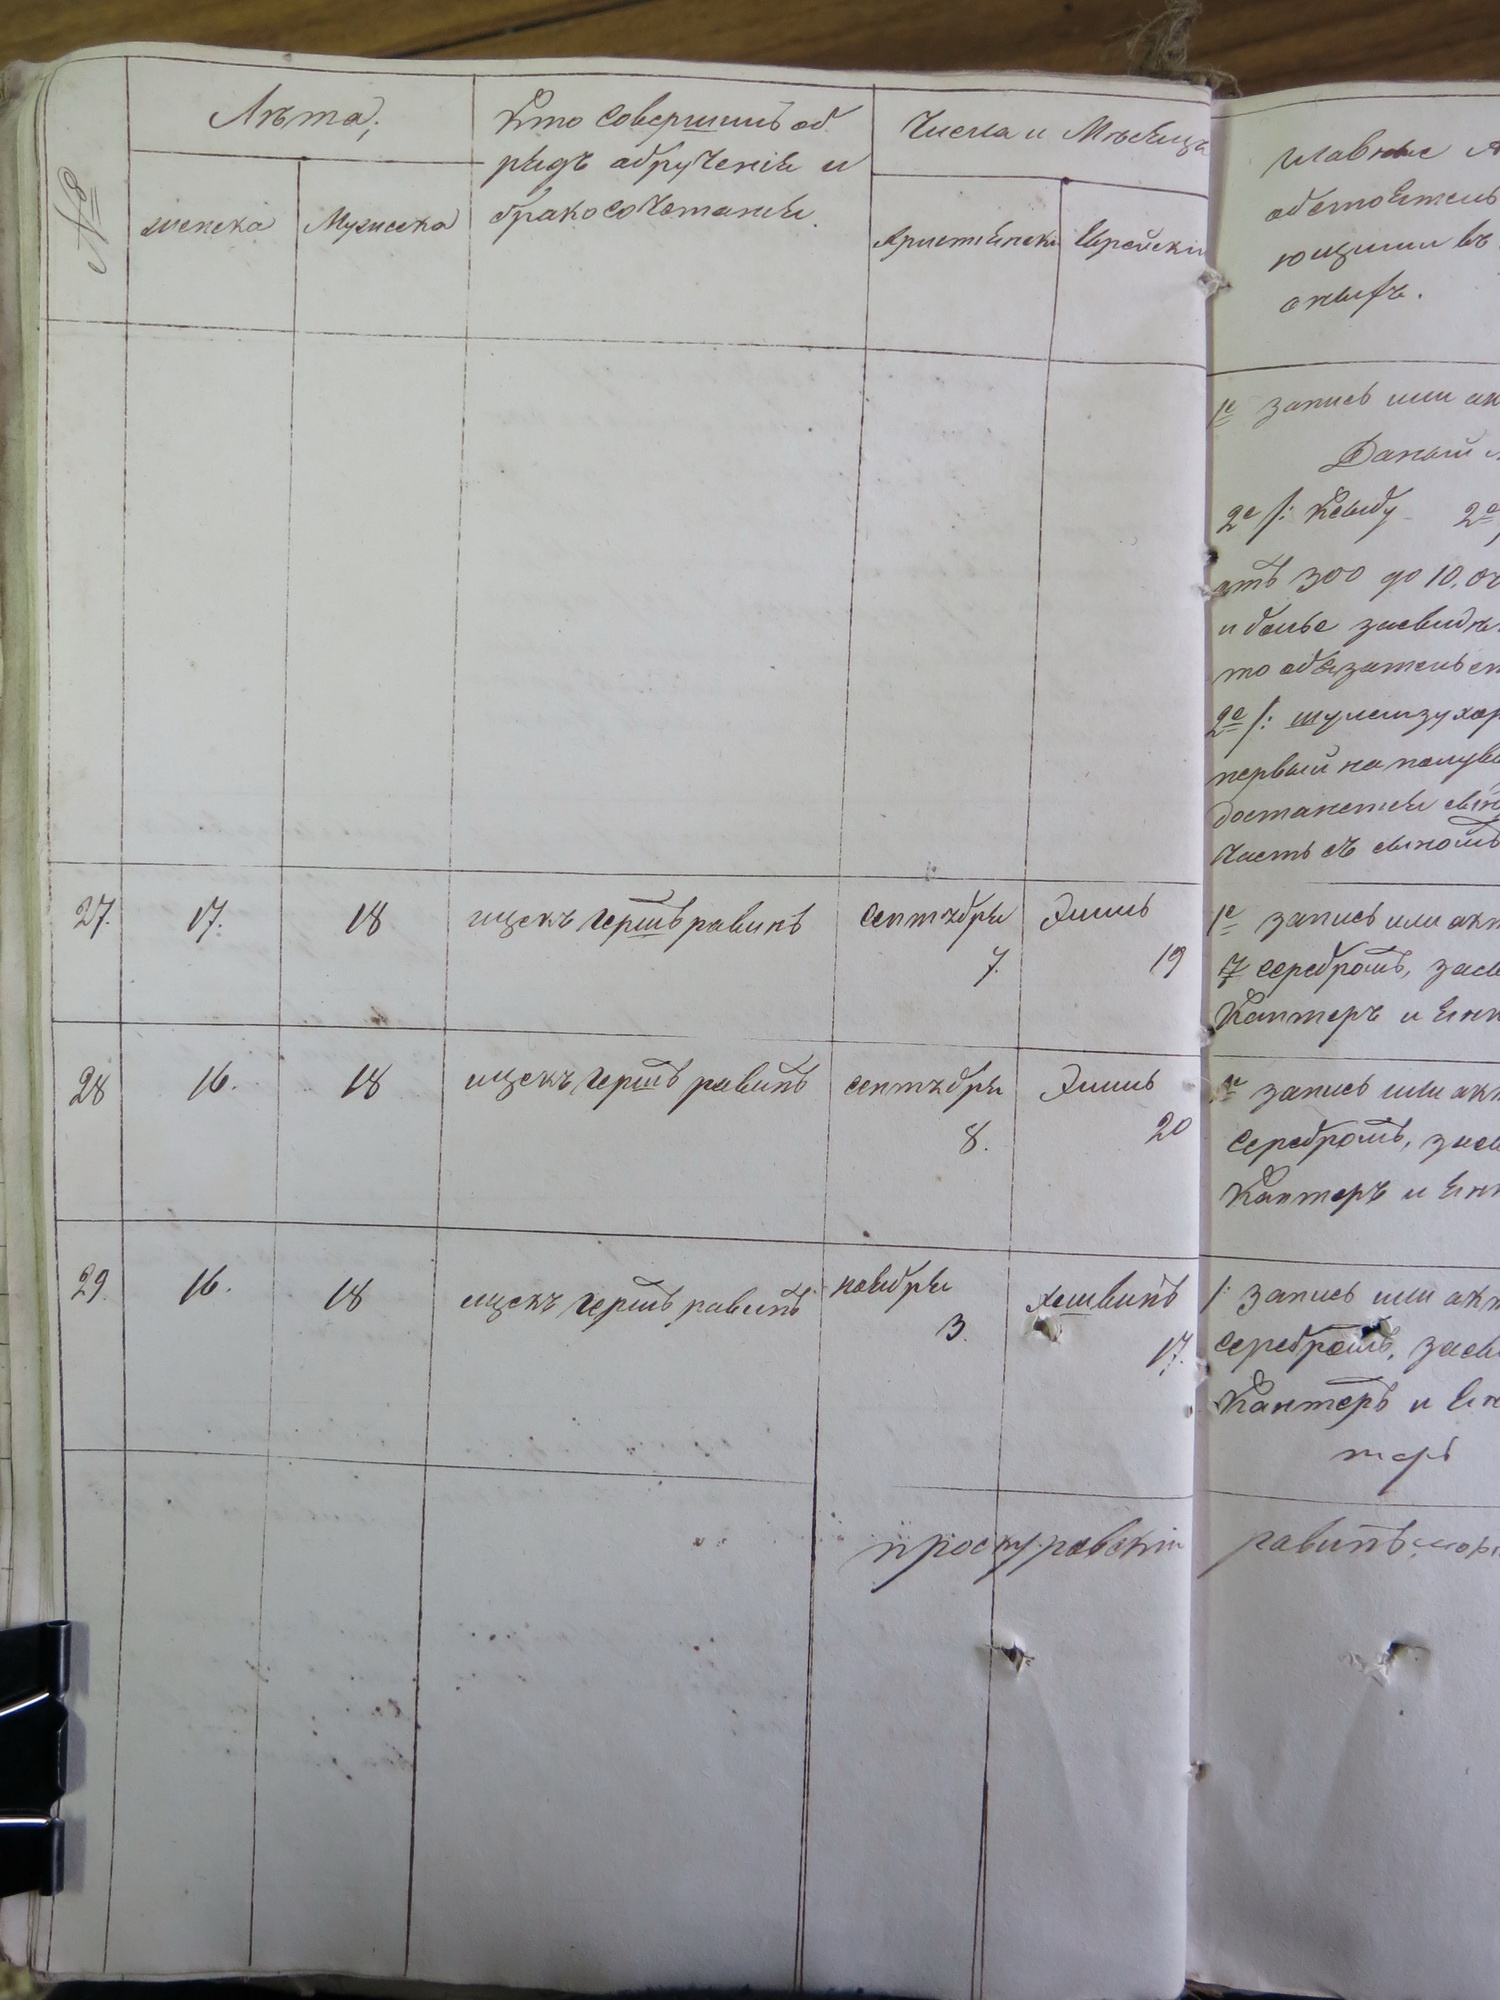 №
Лѣта;
женска
Мужеска
Кто совершилъ об
рядъ абрученія и
бракосочетанія.
Числа и Мѣсяцъ
Христіянски
Еврейски
главные
обстоятель
ющими въ
оныхъ.
1е запись или ак
Даный
2е
отъ 300 до 10,
и болѣе засвидѣ
то обязательст
2е
первый на
достанется
часть съ сыномъ
27.
17.
18
ицекъ Гершъ равинъ
Сентября
7.
Элиль
19
1е запись или акт
17 серебромъ, засв
Кантеръ и
28
16.
18
ицекъ Гершъ равинъ
сентября
8.
Элиль
20
запись или акт
Серебромъ, засв
Кантеръ и
29.
16.
18
ицекъ Гершъ равинъ
ноября
3.
хешвинъ
17.
запись или акт
серебромъ, засв
Кантеръ и
теръ
проскуровскій
равинъ